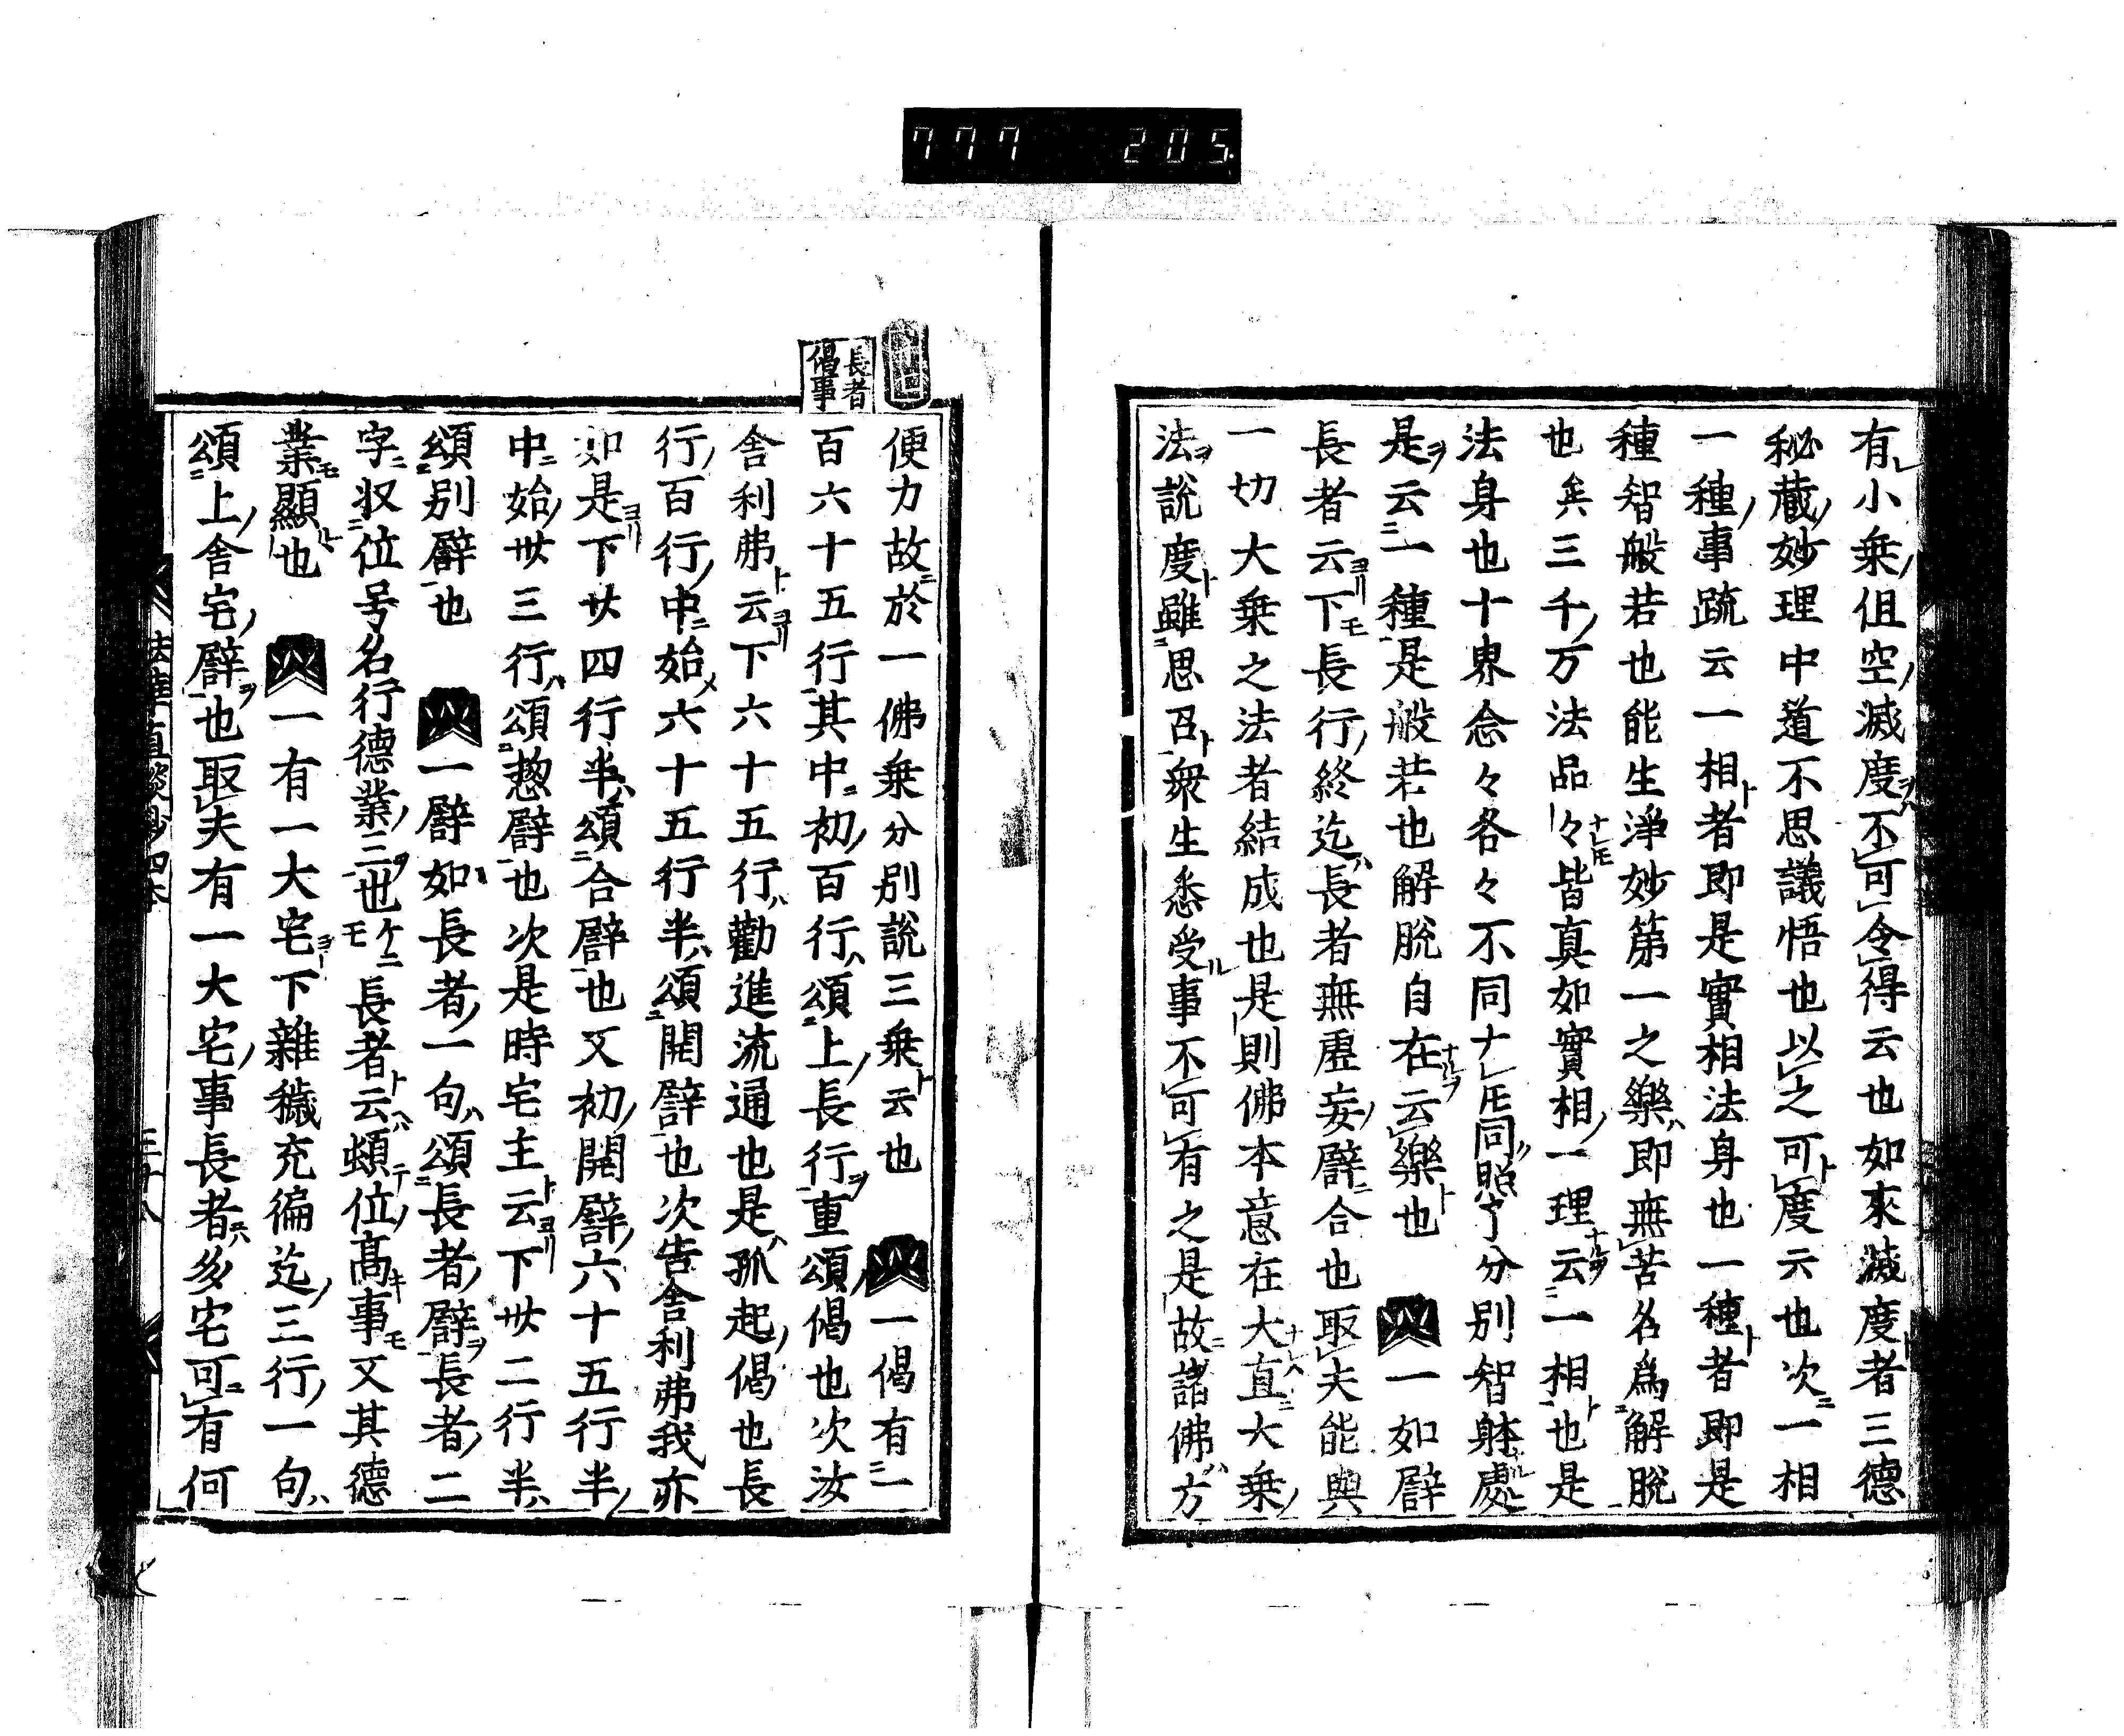 777 205.
有小乗但空滅度不可令得云也如來滅度者三德
秘藏妙理中道不思議悟也以之可度云也次一相
一種事䟽云一相者即是實相法身也一種者即是
種智般若也能生淨妙第一之樂即無苦名爲解脫
也矣三千万法品々皆真如實相一理云一相也是
法身也十界念々各々不同ナレ𪜈同照了分別智躰處
是云一種是般若也解脫自在云樂也 一如譬
長者云下長行終迄長者無虚妄譬合也取夫能與
一切大乗之法者結成也是則佛本意在大直大乗
法說度雖思召衆生悉受事不可有之是故諸佛方
長者
偈事
便力故於一佛乗分別說三乗云也 一偈有一
百六十五行其中初百行頌上長行重頌偈也次汝
舎利弗云下六十五行勸進流通也是孤起偈也長
行百行中始六十五行半頌開譬也次告舎利弗我亦
如是下廿四行半頌合譬也又初開譬六十五行半
中始卅三行頌惣譬也次是時宅主云下卅二行半
頌别譬也 一譬如長者一句頌長者譬長者二
字収位号名行德業三也 長者云蝢位髙事又其德
業顯也 一有一大宅下雜穢充徧迄三行一句
頌上舎宅譬也取夫有一大宅事長者多宅可有何
法華直談鈔四本 三十八